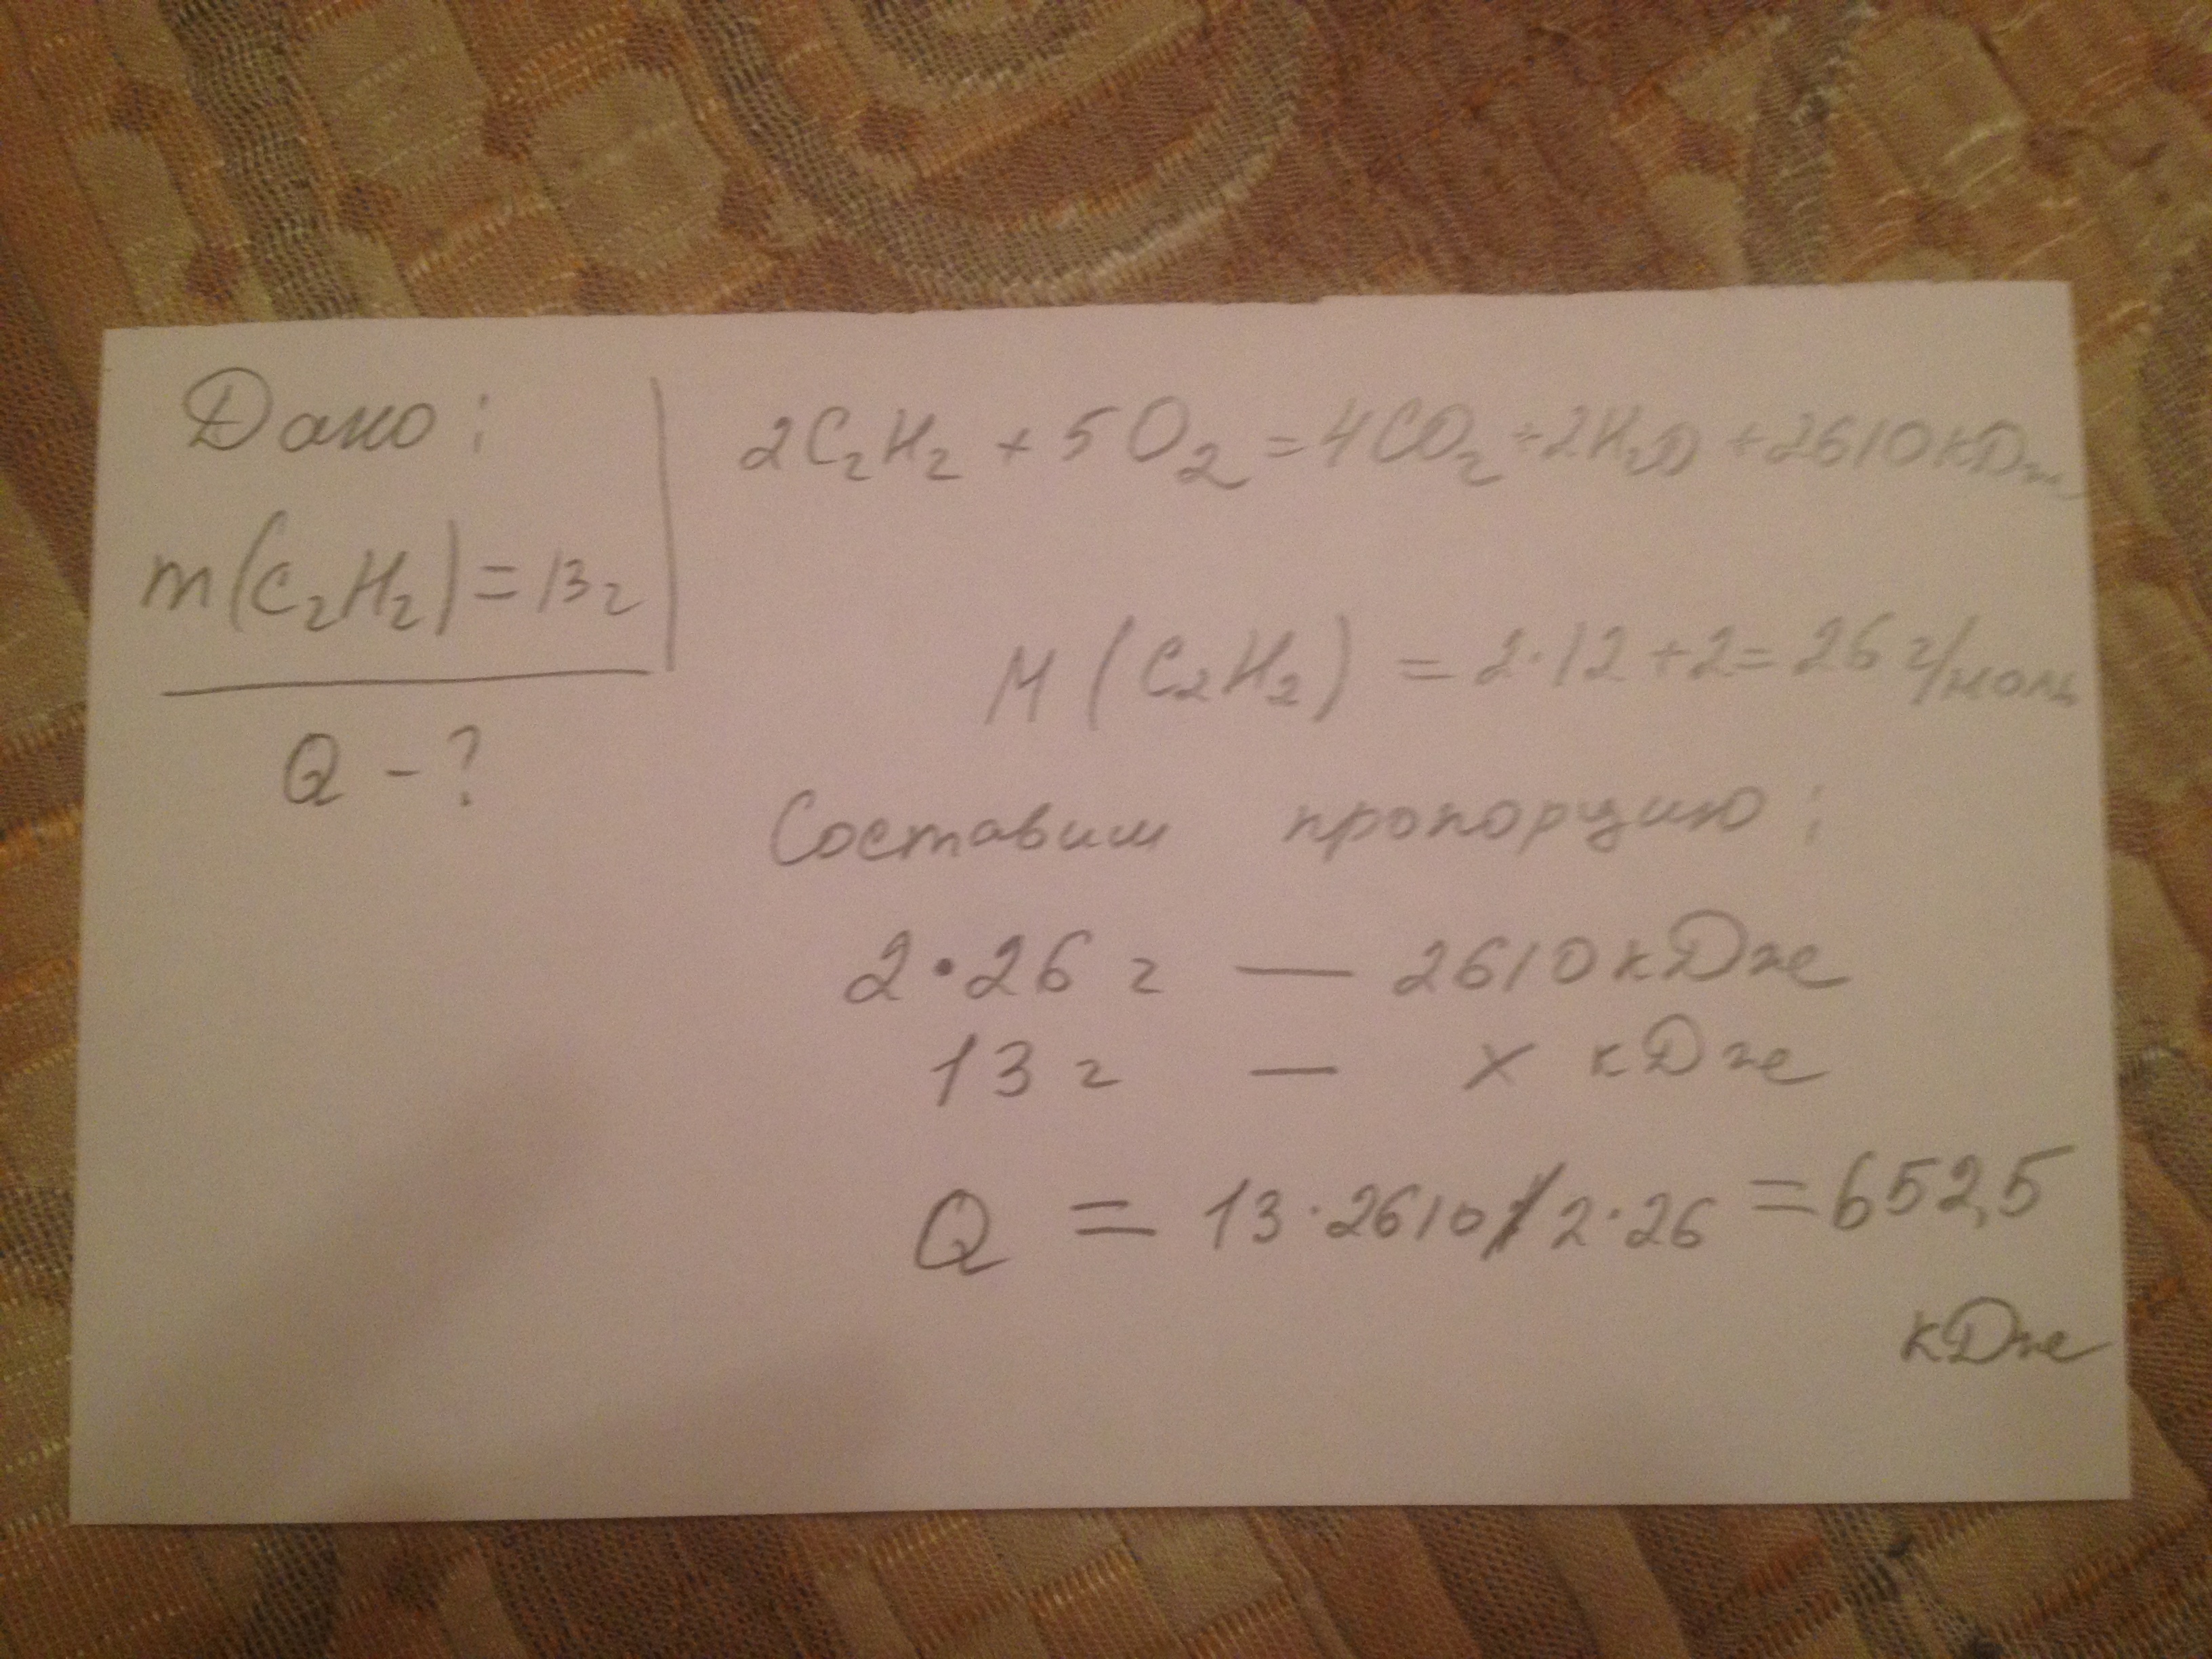 Дано:
m(C₂H₂)=13г
Q - ?
2C₂H₂ + 5O₂ = 4CO₂ + 2H₂O + 2610 кДж
M(C₂H₂) = 2·12+2= 26 г/моль
Составим пропорцию:
2·26 г — 2610 кДж
13 г — x кДж
Q = 13·2610/2·26 = 652,5
кДж